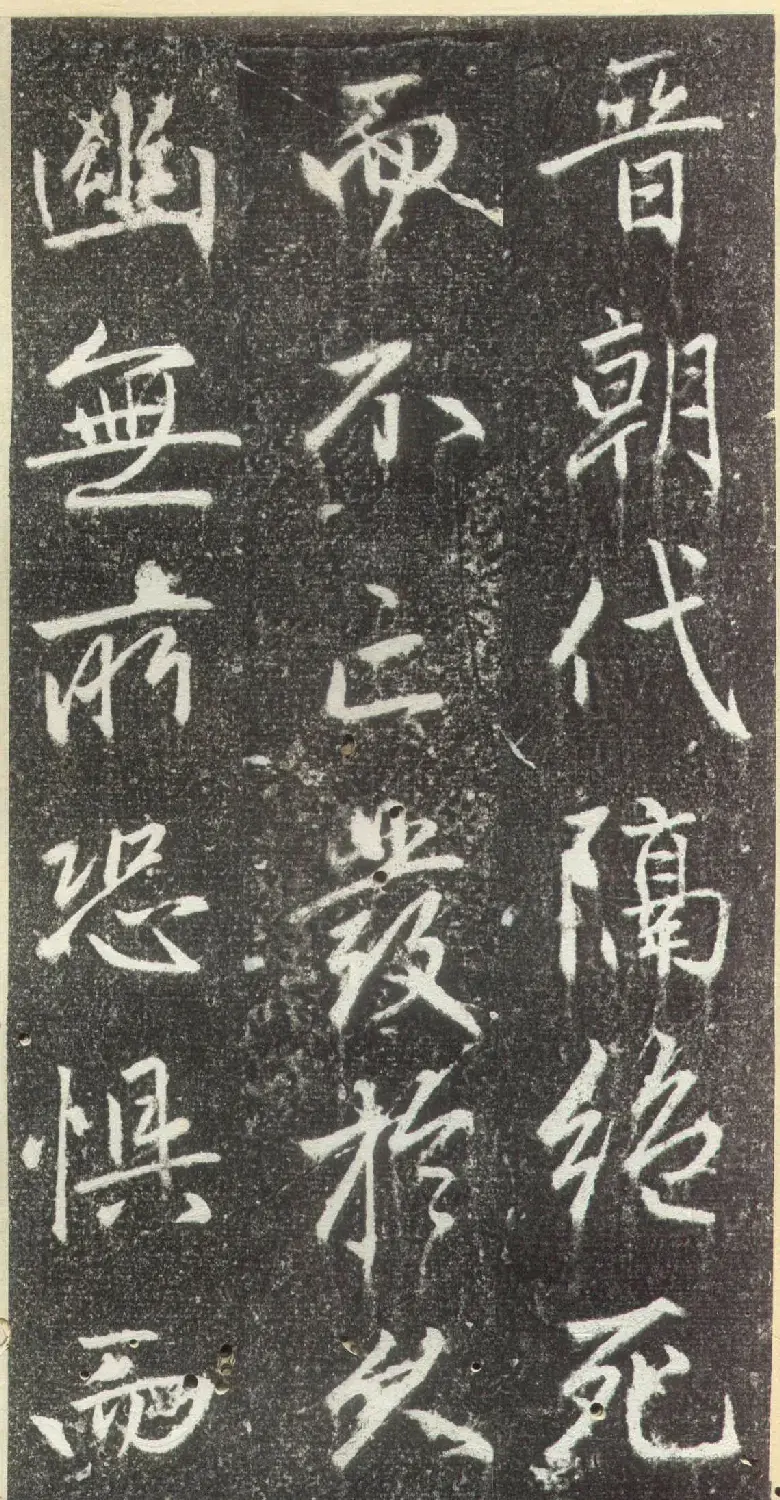 晋朝代隔絶死
而不亡發於久
幽無所恐懼而